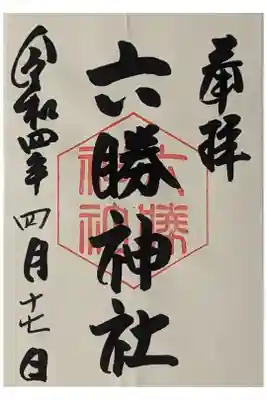 奉拝
六勝神社
令和四年四月十七日
六勝
神社